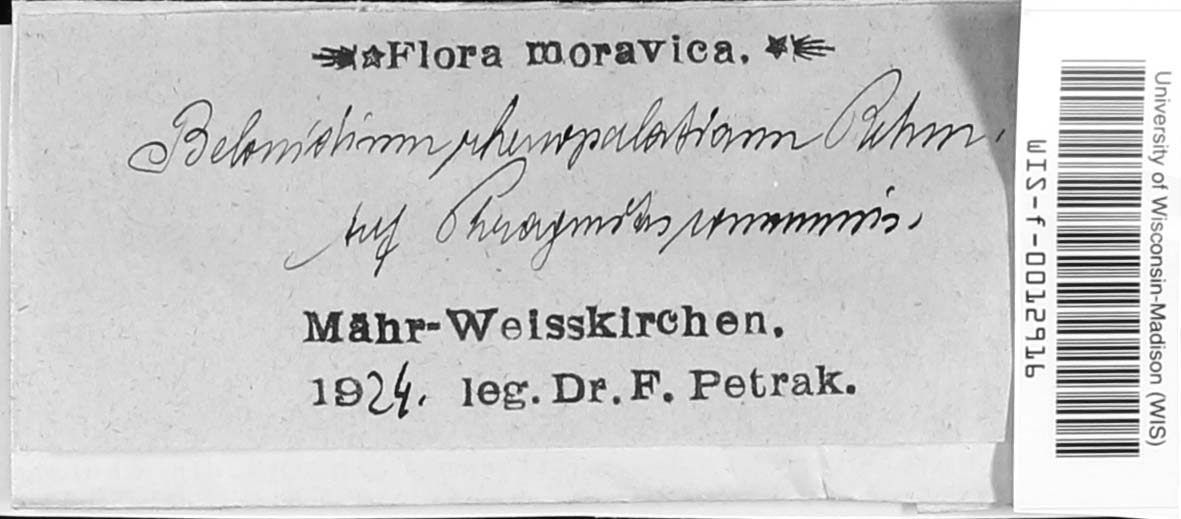 Flora moravica.
Belonidium rhenopalatianum Rehm.
Auf Phragmites communis.
Mähr-Weisskirchen.
1924. leg. Dr. F. Petrak.
University of Wisconsin-Madison (WIS)
WIS-f-0012916